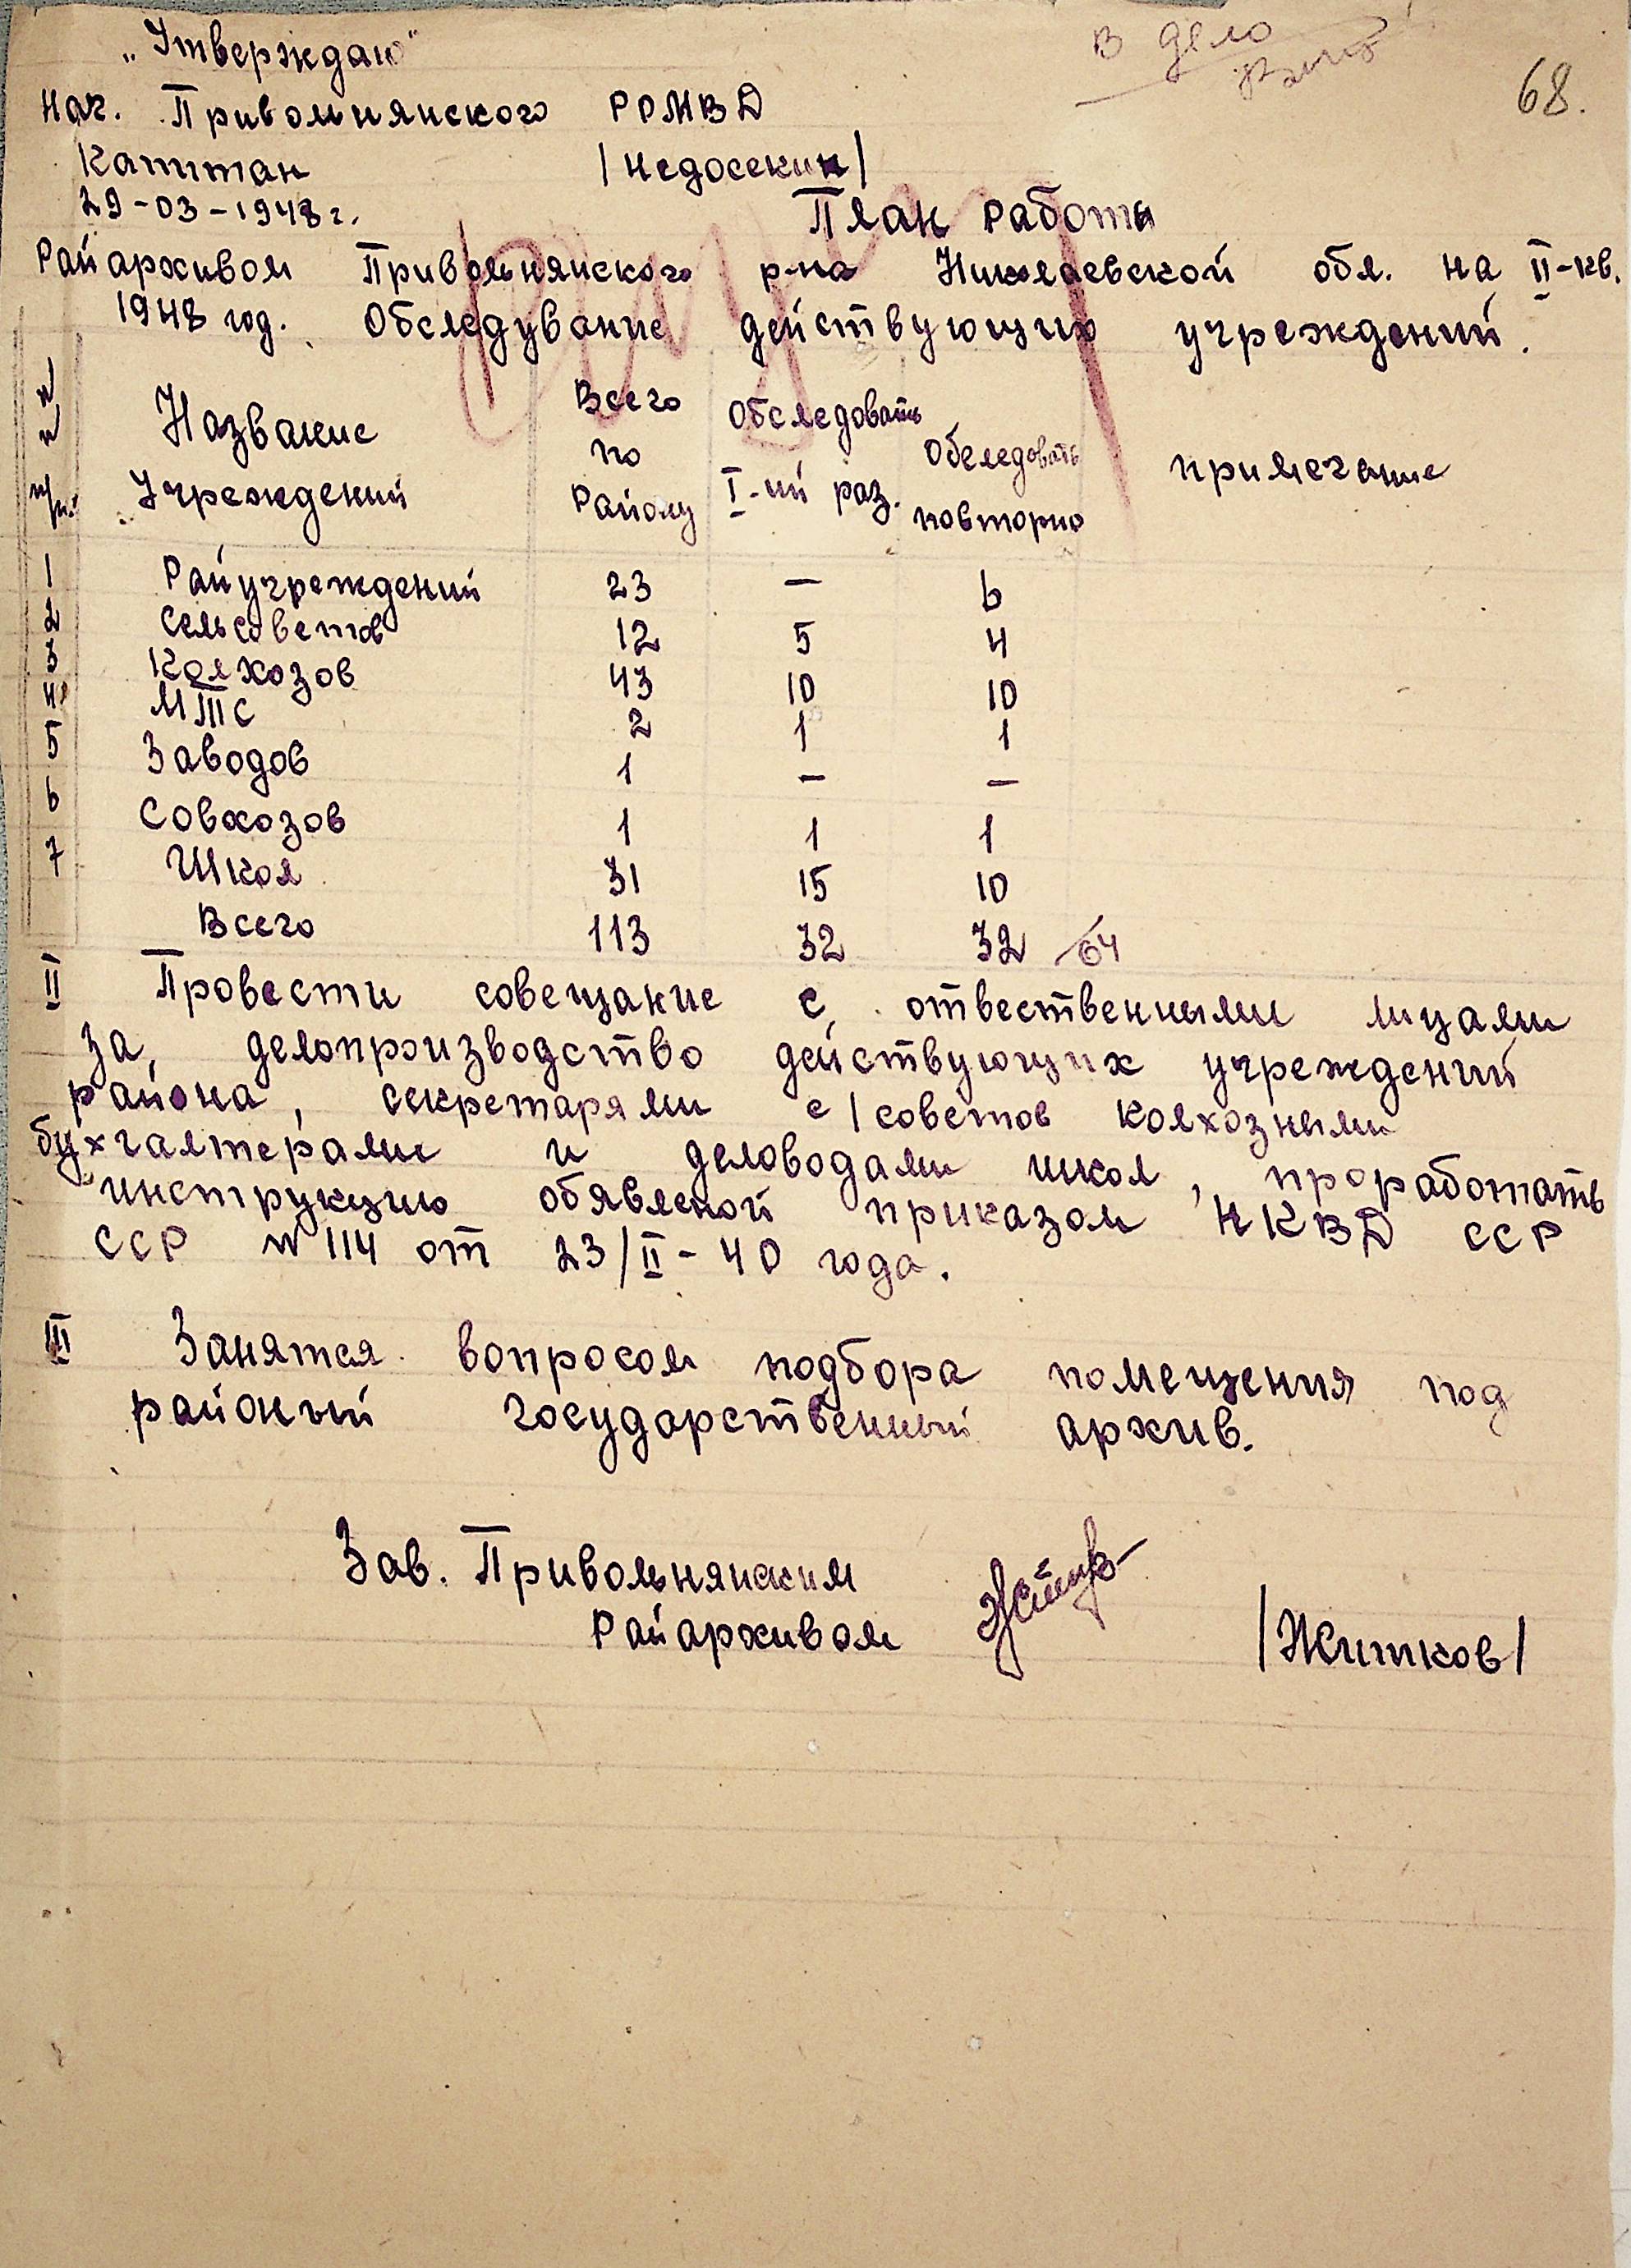 В дело
68.
„Утверждаю"
Нач. Привольнянского РОМВД
Капитан /Недосекин/
29-03-1948 г.
План работы
Райархивом Привольнянского р-на Николаевской обл. на II-кв.
1948 год. Обследувание действующих учреждений.
№ № п/п. Название Учреждений Всего по Району Обследовать I-ий раз. Обследовать повторно примечание
1 Райучреждений 23 — 6
2 Сельсоветов 12 5 4
3 Колхозов 43 10 10
4 МТС 2 1 1
5 Заводов 1 — —
6 Совхозов 1 1 1
7 Школ 31 15 10
Всего 113 32 32 64
II Провести совещание с отвественными лицами
за, делопроизводство действующих учреждений
района, секретарями с/советов колхозными
бухгалтерами и деловодами школ, проработать
инструкцию обявленой приказом НКВД ССР
ССР № 114 от 23/II-40 года.
III Занятся вопросом подбора помещения под
районый государственный архив.
Зав. Привольнянским
Райархивом /Житков/